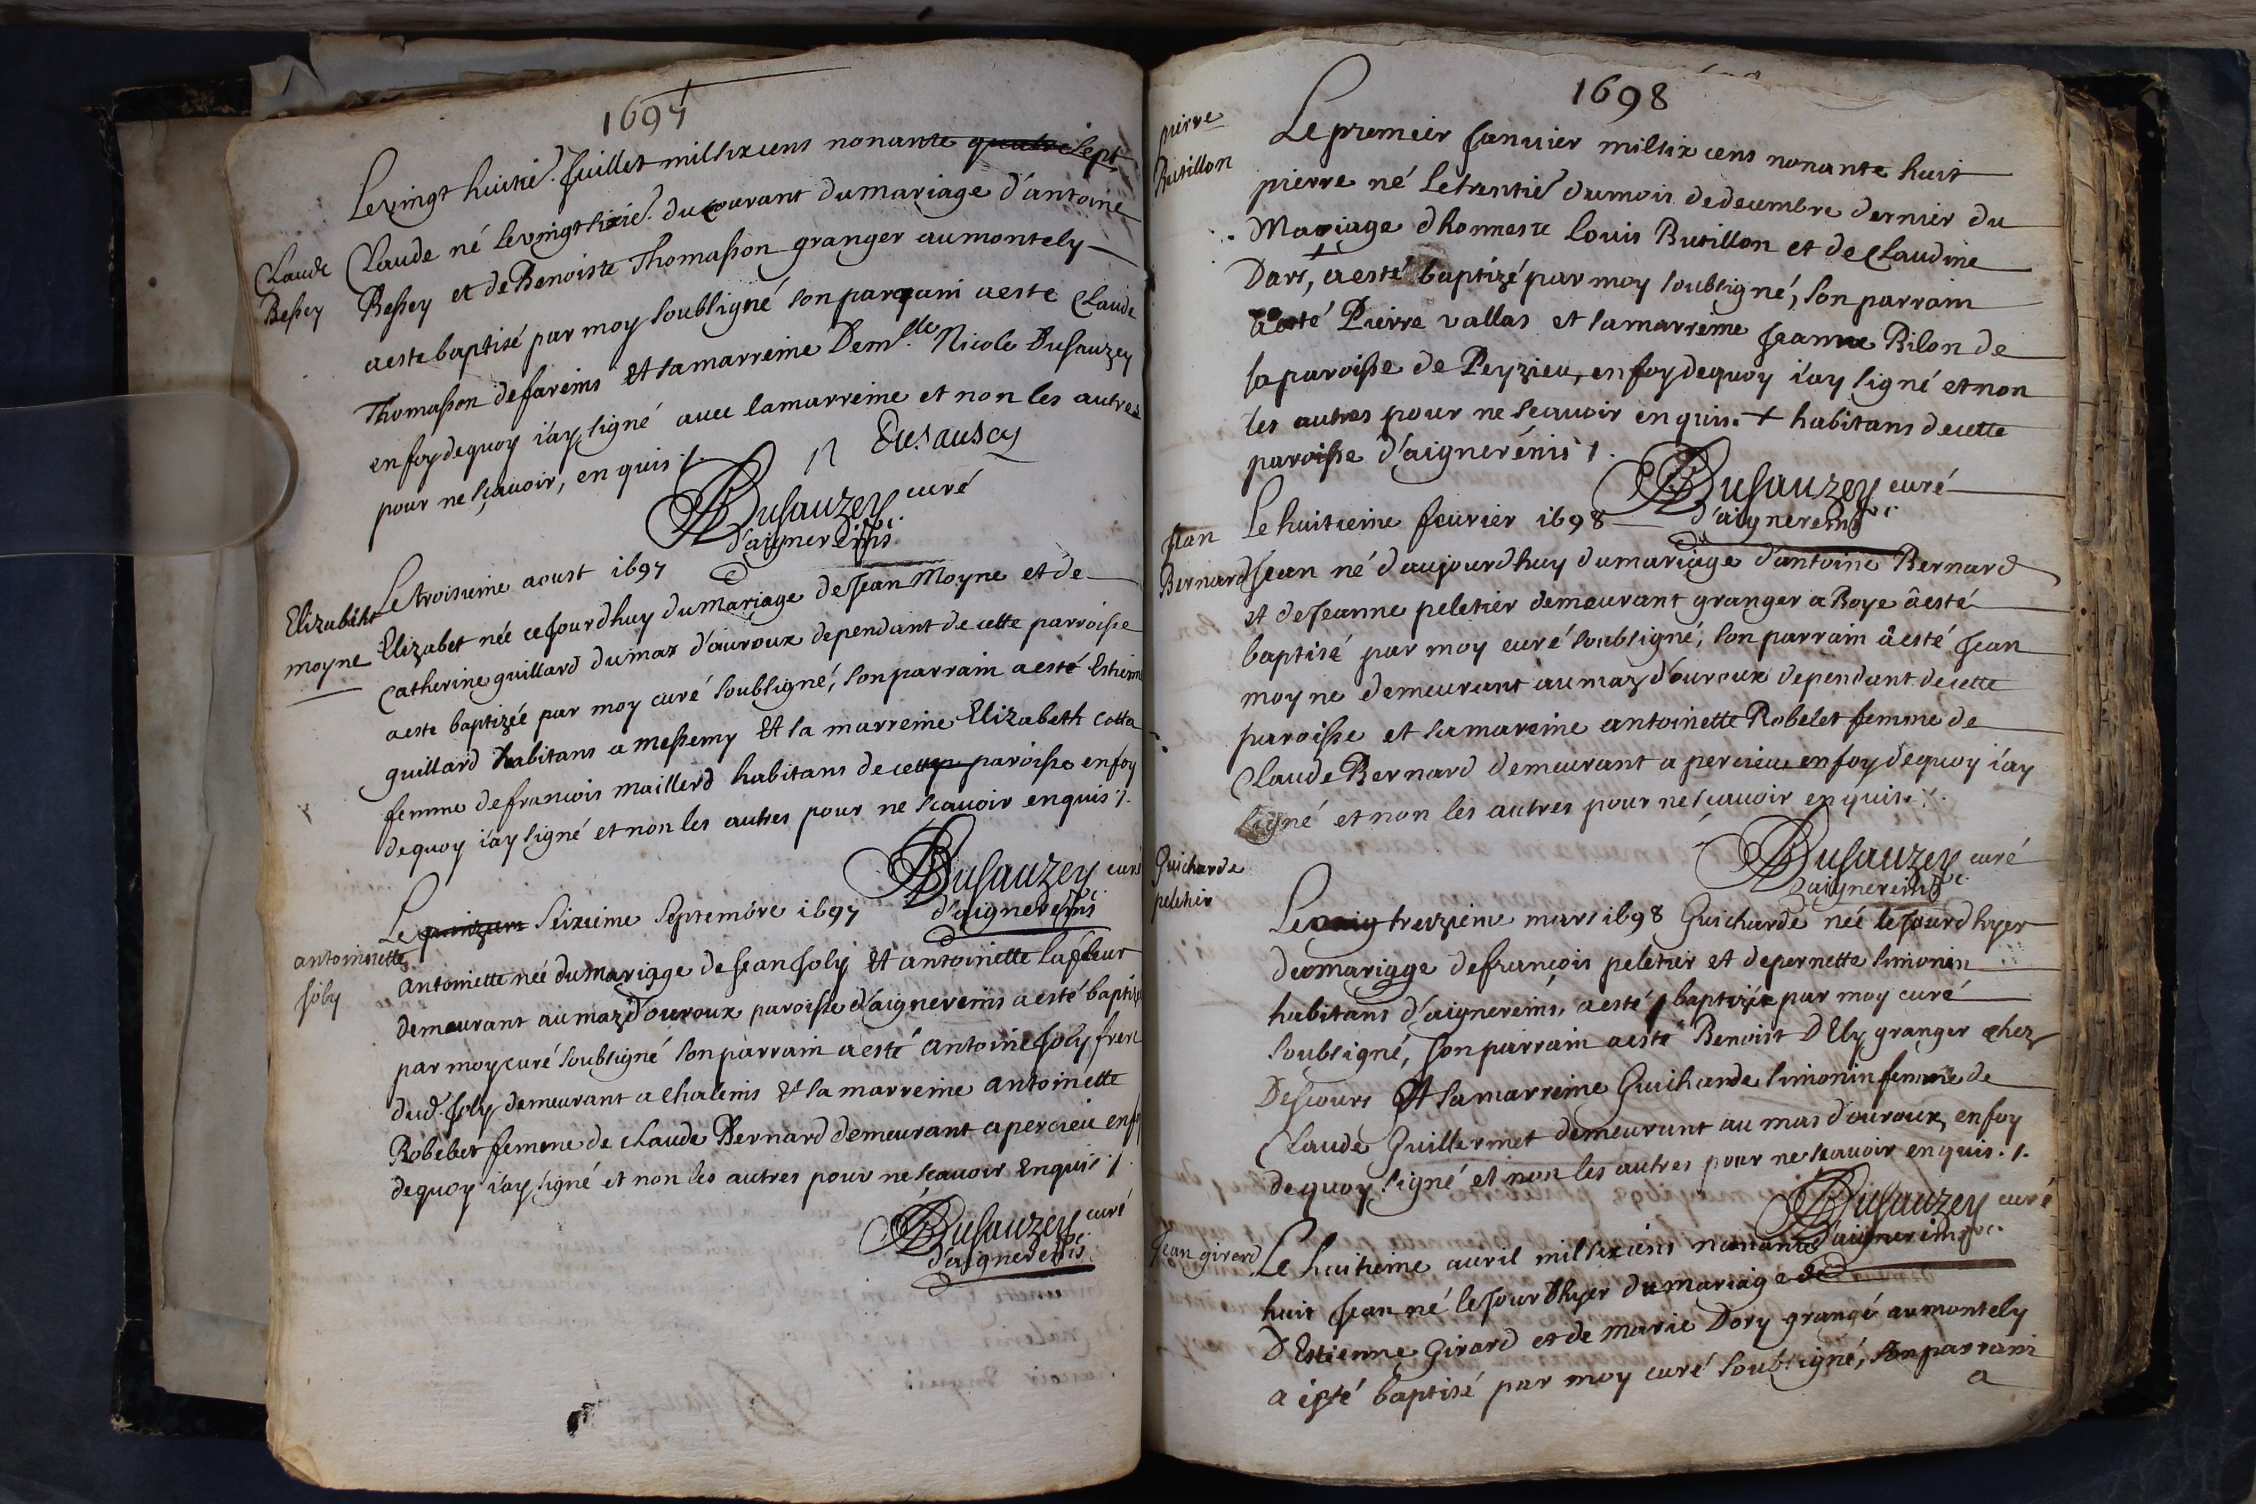 1697
Le vingt huitie. Juillet mil six cens nonante quatre sept
Claude né le vingt sixie. du courant du mariage d'antoine
Claude
Bessey
Bessey et de Benoiste Thomasson granger au montely
a este baptisé par moy soubsigné son parrain a este Claude
Thomasson de fareins Et sa marreine Dem.lle Nicole Dusauzey
en foy de quoy i'ay signé avec la marreine et non les autres
pour ne sçavoir, en quis ·/.
n Dusausey
Dusauzey curé
d'aignereins
Le troisieme aoust 1697
Elizabeht
moyne
Elizabet née ce Jourdhuy du mariage de Jean Moyne et de
Catherine guillard du maz d'ouroux dependant de cette parroisse
a este baptizée par moy curé soubsigné, son parrain a esté Estienne
guillard habitans a messemy Et sa marreine Elizabeth Cotta
femme de francois maillerd habitans de cette paroisse en foy
de quoy i'ay signé et non les autres pour ne scavoir enquis ·/.
Dusauzey curé
d'aignereins
Le quinzem seizieme septembre 1697
antoinette
Joly
antoinette née du mariage de Jean Joly Et antoinette lafleur
demeurant au maz d'ouroux paroisse d'aignereins a esté baptizé
par moy curé soubsigné son parrain a esté antoine Joly frere
dud. Joly demeurant a Chaleins Et la marreine antoinette
Robelet femme de claude Bernard demeurant a percieu en foy
de quoy i'ay signé et non les autres pour ne scavoir Enquis ·/.
Dusauzey curé
d'aignereins
1698
pierre
Butillon
Le premeir Janvier mil six cens nonante huit
pierre né le trentie du mois de decembre dernier du
Mariage d'honneste Louis Butillon et de Claudine
Dars, + a esté baptizé par moy soubsigné, son parrain
a esté Pierre vallas et sa marreine Jeanne Bilon de
la paroisse de Peyzieu, en foy de quoy i'ay signé et non
les autres pour ne sçavoir en quis. + habitans de cette
paroisse d'aignereins /.
Dusauzey curé
d'aignereins
Jean
Bernard
Le huitieme fevrier 1698
Jean né d'aujourdhuy du mariage d'antoine Bernard
et de Jeanne peletier demeurant granger a Roye a esté
baptisé par moy curé soubsigné, son parrain a esté Jean
moyne demeurant au maz d'ouroux dependant de cette
paroisse et sa mareine antoinette Robelet femme de
Claude Bernard demeurant a percieu en foy de quoy i'ay
signé et non les autres pour ne scavoir enquis ·/.
Dusauzey curé
d'aignereins
Guicharde
peletier
Le treizieme mars 1698 Guicharde née le Jourd hyer
du mariage de françois peletier et de pernette simonin
habitans d'aignereins, a esté baptizée par moy curé
soubsigné, son parrain a esté Benoist D'Ely granger chez
Descours Et sa marreine Guicharde simonin femme de
Claude Guillermet demeurant au mas d'ouroux, en foy
de quoy signé et non les autres pour ne scavoir enquis ·/.
Dusauzey curé
d'aignereins
Jean girard
Le huitieme avril mil six cens nonante
huit Jean né le Jour d'hyer du mariage de
D'Estienne Girard et de marie Dory grangé au montely
a esté baptisé par moy curé soubsigné, son parrain
a